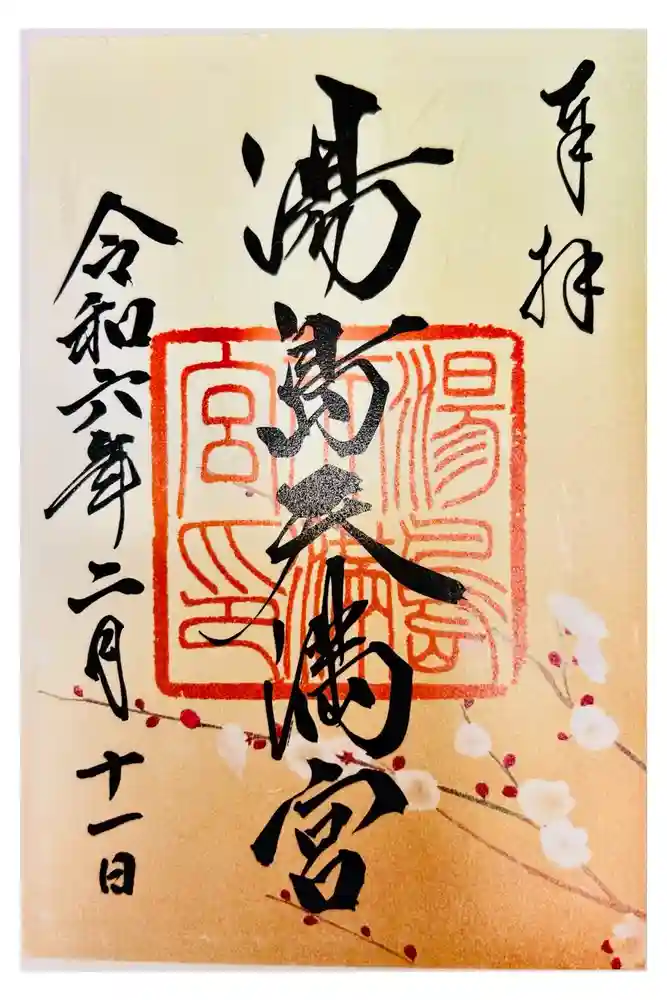 奉拝
湯島天満宮
湯島天満宮印
令和六年二月十一日